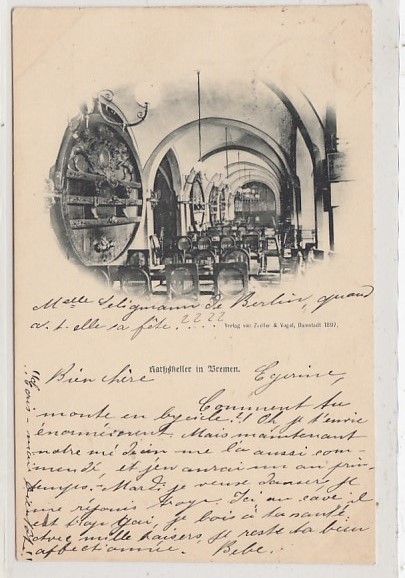 Melle Seligmann de Berlin, quand
a-t-elle sa fête? ....
2222
Verlag von Zedler & Vogel, Darmstadt 1897.
Rathskeller in Bremen.
Bien chère Egerine,
Comment tu
monte en bycicle?! Oh je t'envie
énormément. Mais maintenant
notre médisien me l'a aussi com-
mendé, et j'en aurai un au prin-
temps. Mardi je veux danser, je
me réjouis trop. Ici au cave il
est trop gai, je bois à ta santé
avec mille baisers, je reste ta bien
affectionnée. Bebe.